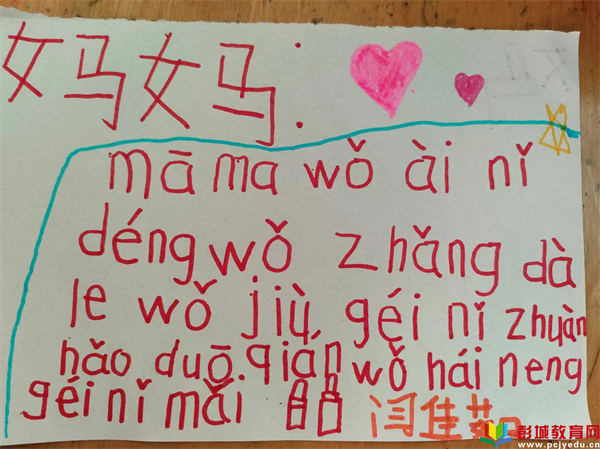 妈妈:
māma wǒ ài nǐ
déng wǒ zhǎng dà
le wǒ jiù géi nǐ zhuàn
hǎo duō qián wǒ hái neng
géi nǐ mǎi
闫佳茹
彭城教育网
www.pcjyedu.cn